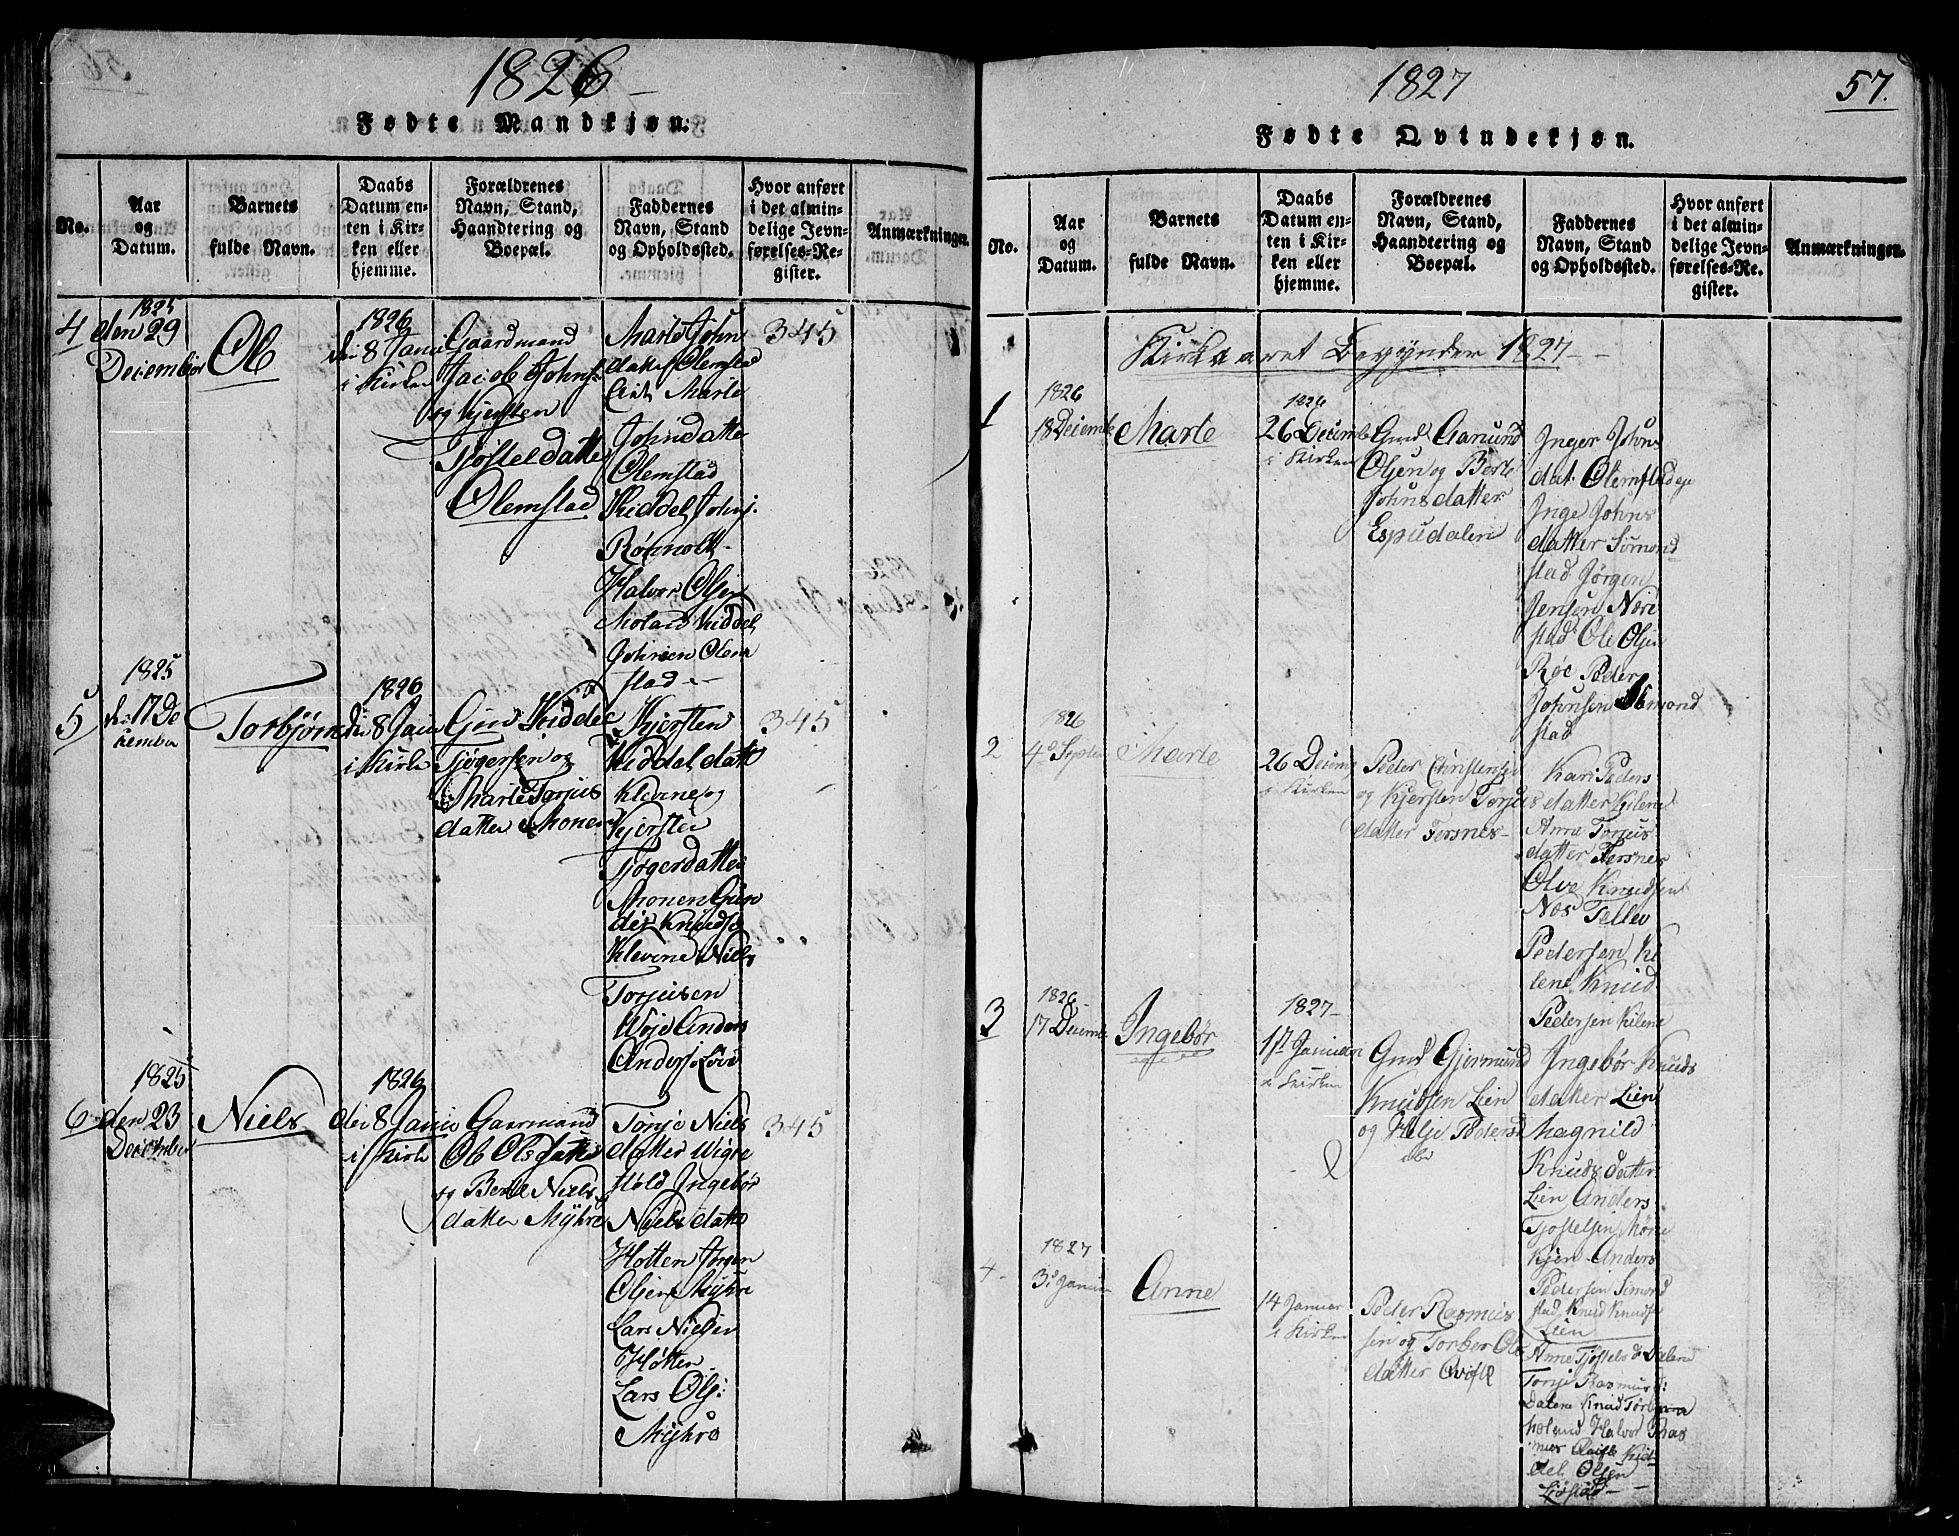 1826
Fødte Mandkjøn.
No.
Aar
og
Datum.
Barnets
fulde Navn.
Daabs
Datum en-
ten i Kir-
ken eller
hjemme.
Forældrenes
Navn, Stand,
Haandtering og
Boepæl.
Faddernes
Navn, Stand
og Opholdssted.
Hvor anført
i det almin-
delige Jevn-
førelses-Re-
gister.
Anmærkninger.
4
1825
den 29
Deiember
Ole
1826
den 8 Janu
i Kirken
Gaardmand
Jacob Johns
og Kjersten
Tjøsteldatter
Olemstad
Marte John
datter Olemstad
Marte
Johndatter
Olemstad
Kiddel Johns
Røinholt
Halvor Olsen
Moland Kiddel
Johnsen Olem
stad
345
5
1825
den 17 De
cember
Torbjøn
1826
den 8 Janu
i Kirke
Gm Kiddel
Tjøgersen og
Marte Torjus
datter Monen
Kjersten
Kiddal datter
Klevene og
Kjersten
Tjøgerdatter
Monen Gun
der Knudsø
Klevene Niels
Torjusen
Woje Anders
Anders: Løve
345
6
1825
den 23
December
Niels
1826
den 8 Janu
i Kirke
Gaarmand
Ole Ols
og Berte Niels
datter Myhre
Torje Niels
datter Wigre
støld Ingebør
Niels datter
Hotten Jørgen
Olsen Myhre
Lars Nielsen
Høtten
Lars Ols:
Myhre
345
1827
57.
Fødte Qvindekjøn.
No.
Aar
og
Datum.
Barnets
fulde Navn.
Daabs
Datum en-
ten i Kir-
ken eller
hjemme.
Forældrenes
Navn, Stand,
Haandtering og
Boepæl.
Faddernes
Navn, Stand
og Opholdssted.
Hvor anført
i det almin-
delige Jevn-
førelses-Re-
gister.
Anmærkninger.
Kirkeaaret Begynder 1827
1
1826
18 Deiembe
Marte
1826
26 Decembe
i Kirken
Gmd Gunund
Olsen og Berte
Johnsdatter
Espudalen
Inger Johns
dat. Olemstad eje
Inge Johns
datter Simond
stad Jørgen
Jensen Næri
stad Ole Olsen
Røe Peder
Johnsen Simond
stad
2
1826
4de Septem
Marte
26 Deiemb
i Kirken
Peder Christensen
og Kjersten Torjus
datter Fersnes
Kari Peders
datter Kilene
Anne Torjus
datter Fersnes
Olve Knudsen
Næs Tellev
Pedersen Ki
lene Knud
Pedersen Kilene
3
1826
17 Deiembe
Ingebør
1827
1st Januar
i Kirken
Gmd Gjermund
Knudsen Lien
og Helje Pedersd
Ingebør Knuds
datter Lien
Magnild
Knuds datter
Lien Anders
Tjøstelsen Møre
kjen Anders
Pedersen Simond
stad Knud Knudse
Lien
4
1827
3de Januar
Anne
14 Januar
i Kirken
Peder Rasmus
sen og Torber Ols
datter
Anne Tjøstels d. Dalene
Torje Rasmus d:
Dalene Knud
Halvor Ras
mus Kid
del Olsen